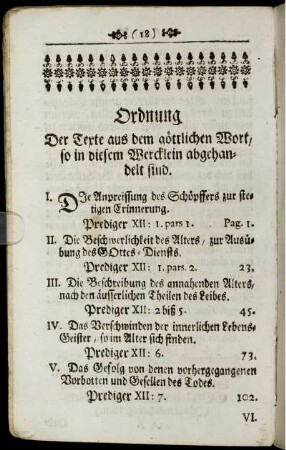 (18)
Ordnung
Der Texte aus dem göttlichen Wort,
so in diesem Wercklein abgehan-
delt sind.
I. DIe Anpreissung des Schöpffers zur ste-
tigen Erinnerung.
Prediger XII: 1. pars 1. Pag. 1.
II. Die Beschwerlichkeit des Alters, zur Ausü-
bung des GOttes-Diensts.
Prediger XII: 1. pars. 2. 23.
III. Die Beschreibung des annahenden Alters,
nach den äusserlichen Theilen des Leibes.
Prediger XII: 2 biß 5. 45.
IV. Das Verschwinden der innerlichen Lebens-
Geister, so im Alter sich finden.
Prediger XII: 6. 73.
V. Das Gefolg von denen vorhergegangenen
Vorbotten und Gesellen des Todes.
Prediger XII: 7. 102.
VI.